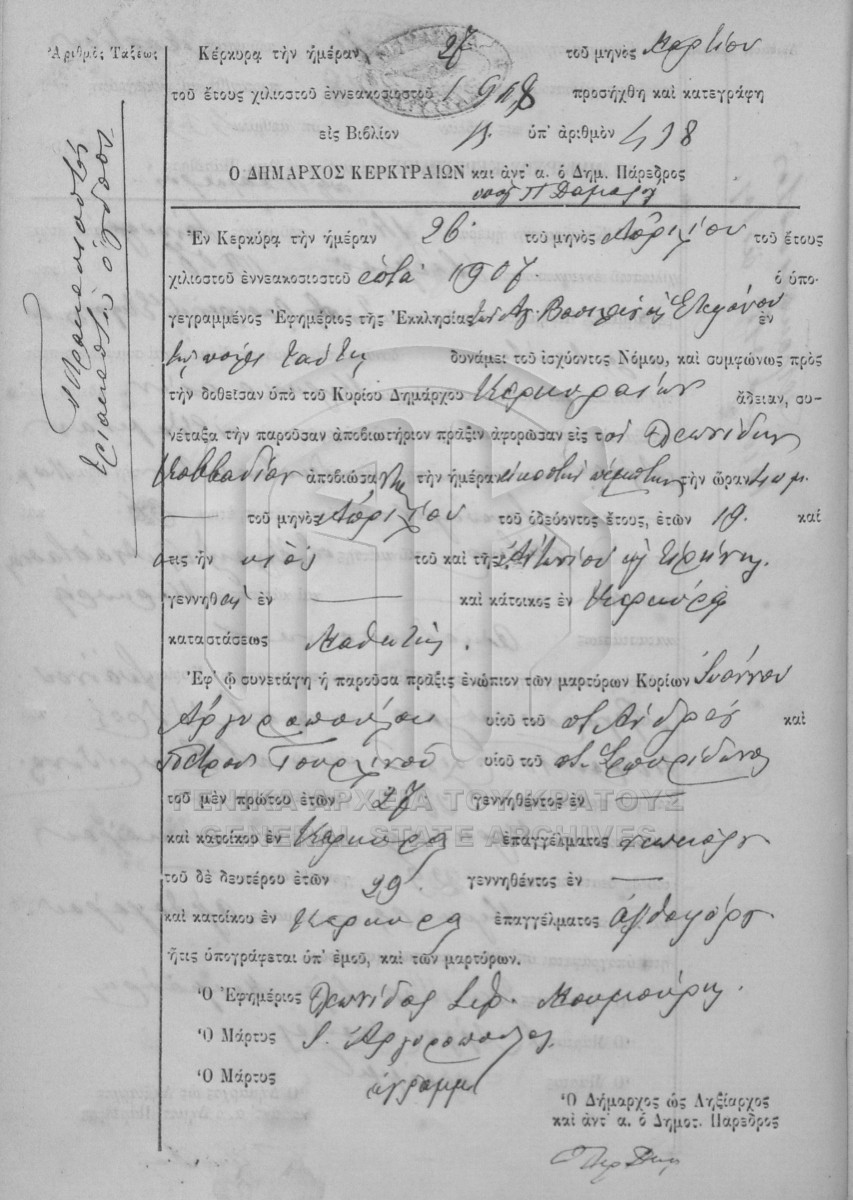 Ἀριθμὸς Τάξεως
Κέρκυρα τὴν ἡμέραν 27 τοῦ μηνὸς Μαρτίου
τοῦ ἔτους χιλιοστοῦ ἐννεακοσιοστοῦ 1918 προσήχθη καὶ κατεγράφη
εἰς Βιβλίον ὑπ' ἀριθμὸν 418
Ὁ ΔΗΜΑΡΧΟΣ ΚΕΡΚΥΡΑΙΩΝ καὶ ἀντ' α. ὁ Δημ. Πάρεδρος
Ἐν Κερκύρᾳ τὴν ἡμέραν 26 τοῦ μηνὸς Ἀπριλίου τοῦ ἔτους
χιλιοστοῦ ἐννεακοσιοστοῦ 1907. ὁ ὑπο-
γεγραμμένος Ἐφημέριος τῆς Ἐκκλησίας Ἁγ. Βασιλείου κ Στεφάνου ἐν
τῇ πόλει ταύτῃ δυνάμει τοῦ ἰσχύοντος Νόμου, καὶ συμφώνως πρὸς
τὴν δοθεῖσαν ὑπὸ τοῦ Κυρίου Δημάρχου Κερκυραίων ἄδειαν, συ-
νέταξα τὴν παροῦσαν ἀποβιωτήριον πρᾶξιν ἀφορῶσαν εἰς τὸν Λεωνίδαν
Κοββαδίαν ἀποβιώσαντα τὴν ἡμέραν εἰκοστὴν πέμπτην τὴν ὥραν μ.μ.
τοῦ μηνὸς Ἀπριλίου τοῦ ὁδεύοντος ἔτους, ἐτῶν 19. καὶ
στις ἦν υἱὸς τοῦ καὶ τῆς Ἀντωνίου κ Εἰρήνης.
γεννηθεὶς ἐν — καὶ κάτοικος ἐν Κερκύρᾳ
καταστάσεως Μαθητής.
Ἐφ' ᾧ συνετάγη ἡ παροῦσα πρᾶξις ἐνώπιον τῶν μαρτύρων Κυρίων Ἰωάννου
Ἀργυροπούλου υἱοῦ τοῦ π. Ἀνδρέου καὶ
Πέτρου Τουρλινοῦ υἱοῦ τοῦ π. Σπυρίδωνος
τοῦ μὲν πρώτου ἐτῶν 27 γεννηθέντος ἐν —
ΓΕΝΙΚΑ ΑΡΧΕΙΑ ΤΟΥ ΚΡΑΤΟΥΣ
GENERAL STATE ARCHIVES
καὶ κατοίκου ἐν Κερκύρᾳ ἐπαγγέλματος
τοῦ δὲ δευτέρου ἐτῶν 29. γεννηθέντος ἐν —
καὶ κατοίκου ἐν Κερκύρᾳ ἐπαγγέλματος
ἥτις ὑπογράφεται ὑπ' ἐμοῦ, καὶ τῶν μαρτύρων.
Ὁ Ἐφημέριος Λεωνίδας Ἱερ. Μουμούρης.
Ὁ Μάρτυς Ι. Ἀργυρόπουλος
Ὁ Μάρτυς ἀγράμμ
Ὁ Δήμαρχος ὡς Ληξίαρχος
καὶ ἀντ' α. ὁ Δημοτ. Πάρεδρος